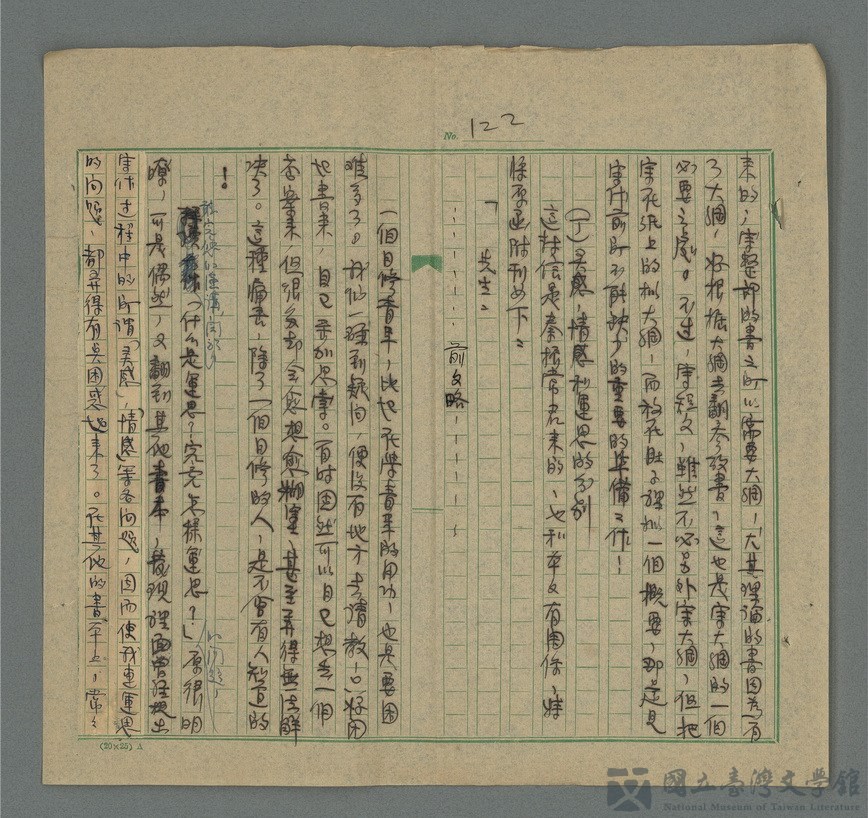 No. 122
來的，寫整部的書之所以需要大綱，尤其理論的書因為有
了大綱，好根據大綱去翻參攷書，這也是寫大綱的一個
必要之處。不過，寫短文，雖然不必另外寫大綱，但把
寫在紙上的拟大綱，而放在肚子裡拟一個概要，那是見
寫作前所不能缺少的重要的準備工作！
（丁）灵感，情感和運思的分别
這封信是秦振常君來的，也和本文有関係，特
採原函附刊如下：
「　先生：
前文略
一個自修青年，比她在學青年的用功，也是要困
難多了。我們一碰到疑问，便没有地方去請教，只好困
也書來，自己去加思索。有時固然可以自己想出一個
答案來，但很多却会愈想愈糊塗，甚至弄得無法解
决了。這種痛苦，除了一個自修的人，是不會有人知道的
！
「什么是運思？究竟怎樣運思？」原很明
瞭，可是偶然，又翻到其他書本，發現裡面曾經提出
寫作过程中的所謂「灵感」，「情感」等各问題，因而使我連運思
的问題，都弄得有点困惑起来了。在其他的書本上，常々
(20×25) A
國立臺灣文學館
National Museum of Taiwan Literature